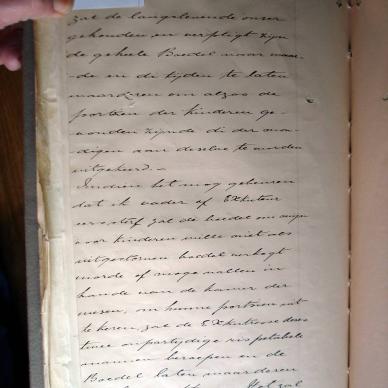 zal de langstlevende onser
gehouden en verpligt zijn
de geheele Boedel maar maar-
de en de tijden te laten
waarderen om alzoo de
portien der kinderen ge-
vonden zijnde di der mon-
digen aan deselve te worden
uitgekeerd. —
Indien het mog gebeuren
dat ik vader of Exkuteur
eers sterf zal de boedel om mijn
voor kinderen wille niet als
uitgestorven boedel verkogt
worde of moge vallen in
hande van de kamer der
wesen, om hunne portsoen uit
te keren, zal de Exkutrise does
twee onpartydige rispektabele
mannen beroepen en de
Boedel laten waarderen
zal